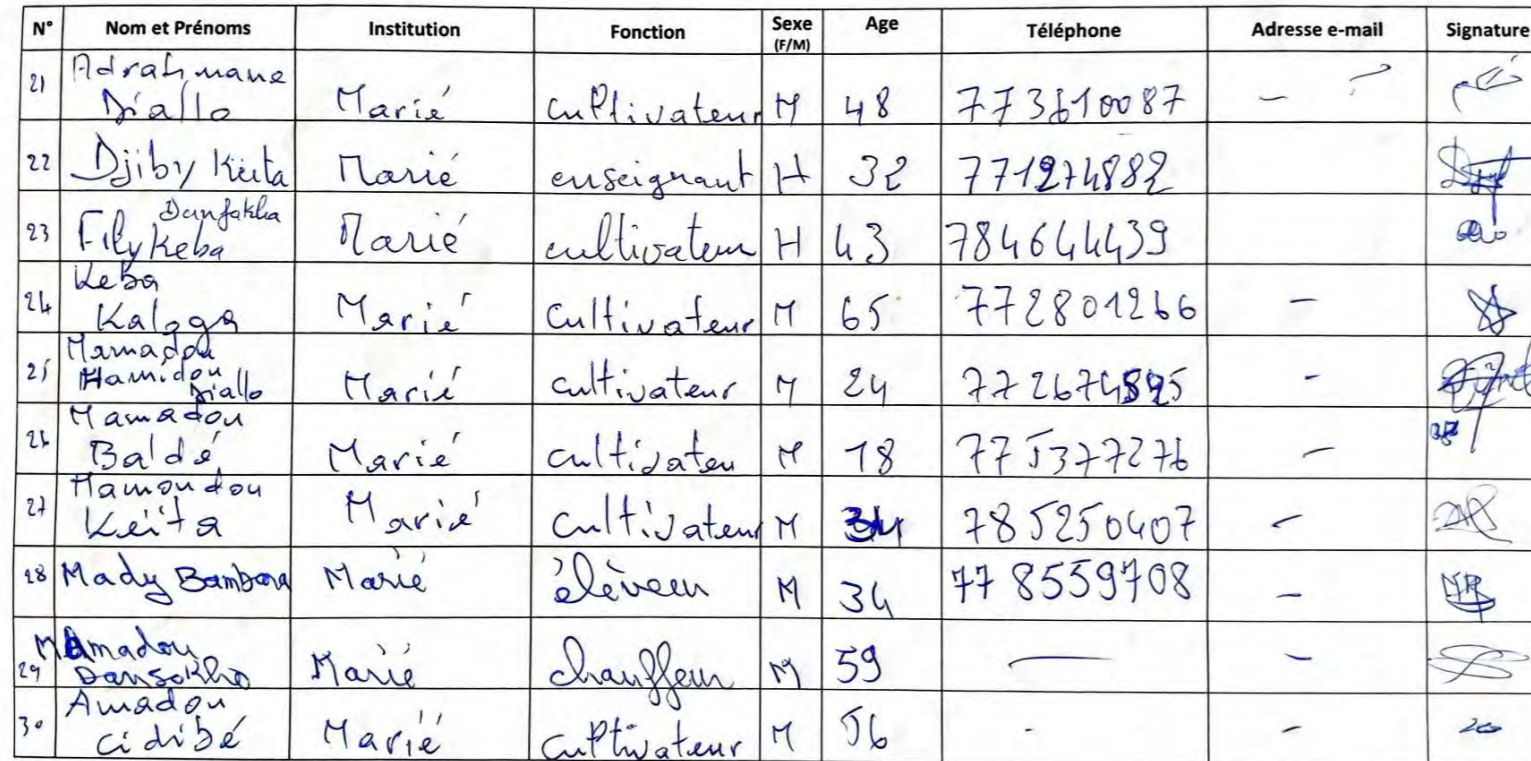 N° Nom et Prénoms Institution Fonction Sexe (F/M) Age Téléphone Adresse e-mail Signature
21 Adrahmane Diallo Marié cultivateur M 48 773610087 -
22 Djiby Keita Marié enseignant H 32 771274882
23 Fily Keba Danfakha Marié cultivateur H 43 784644439
24 Keba Kaloga Marié Cultivateur M 65 772801266 -
25 Mamadou Hamidou Diallo Marié cultivateur M 24 -
26 Mamadou Baldé Marié cultivateu M 18 775377276 -
27 Mamoudou Keita Marié Cultivateur M 34 785250407 -
28 Mady Bambara Marié élèveur M 34 77 8559708 -
29 Mamadou Dansokho Marié chauffeur M 59 - -
30 Amadou cidibé Marié cultivateur M 56 - -